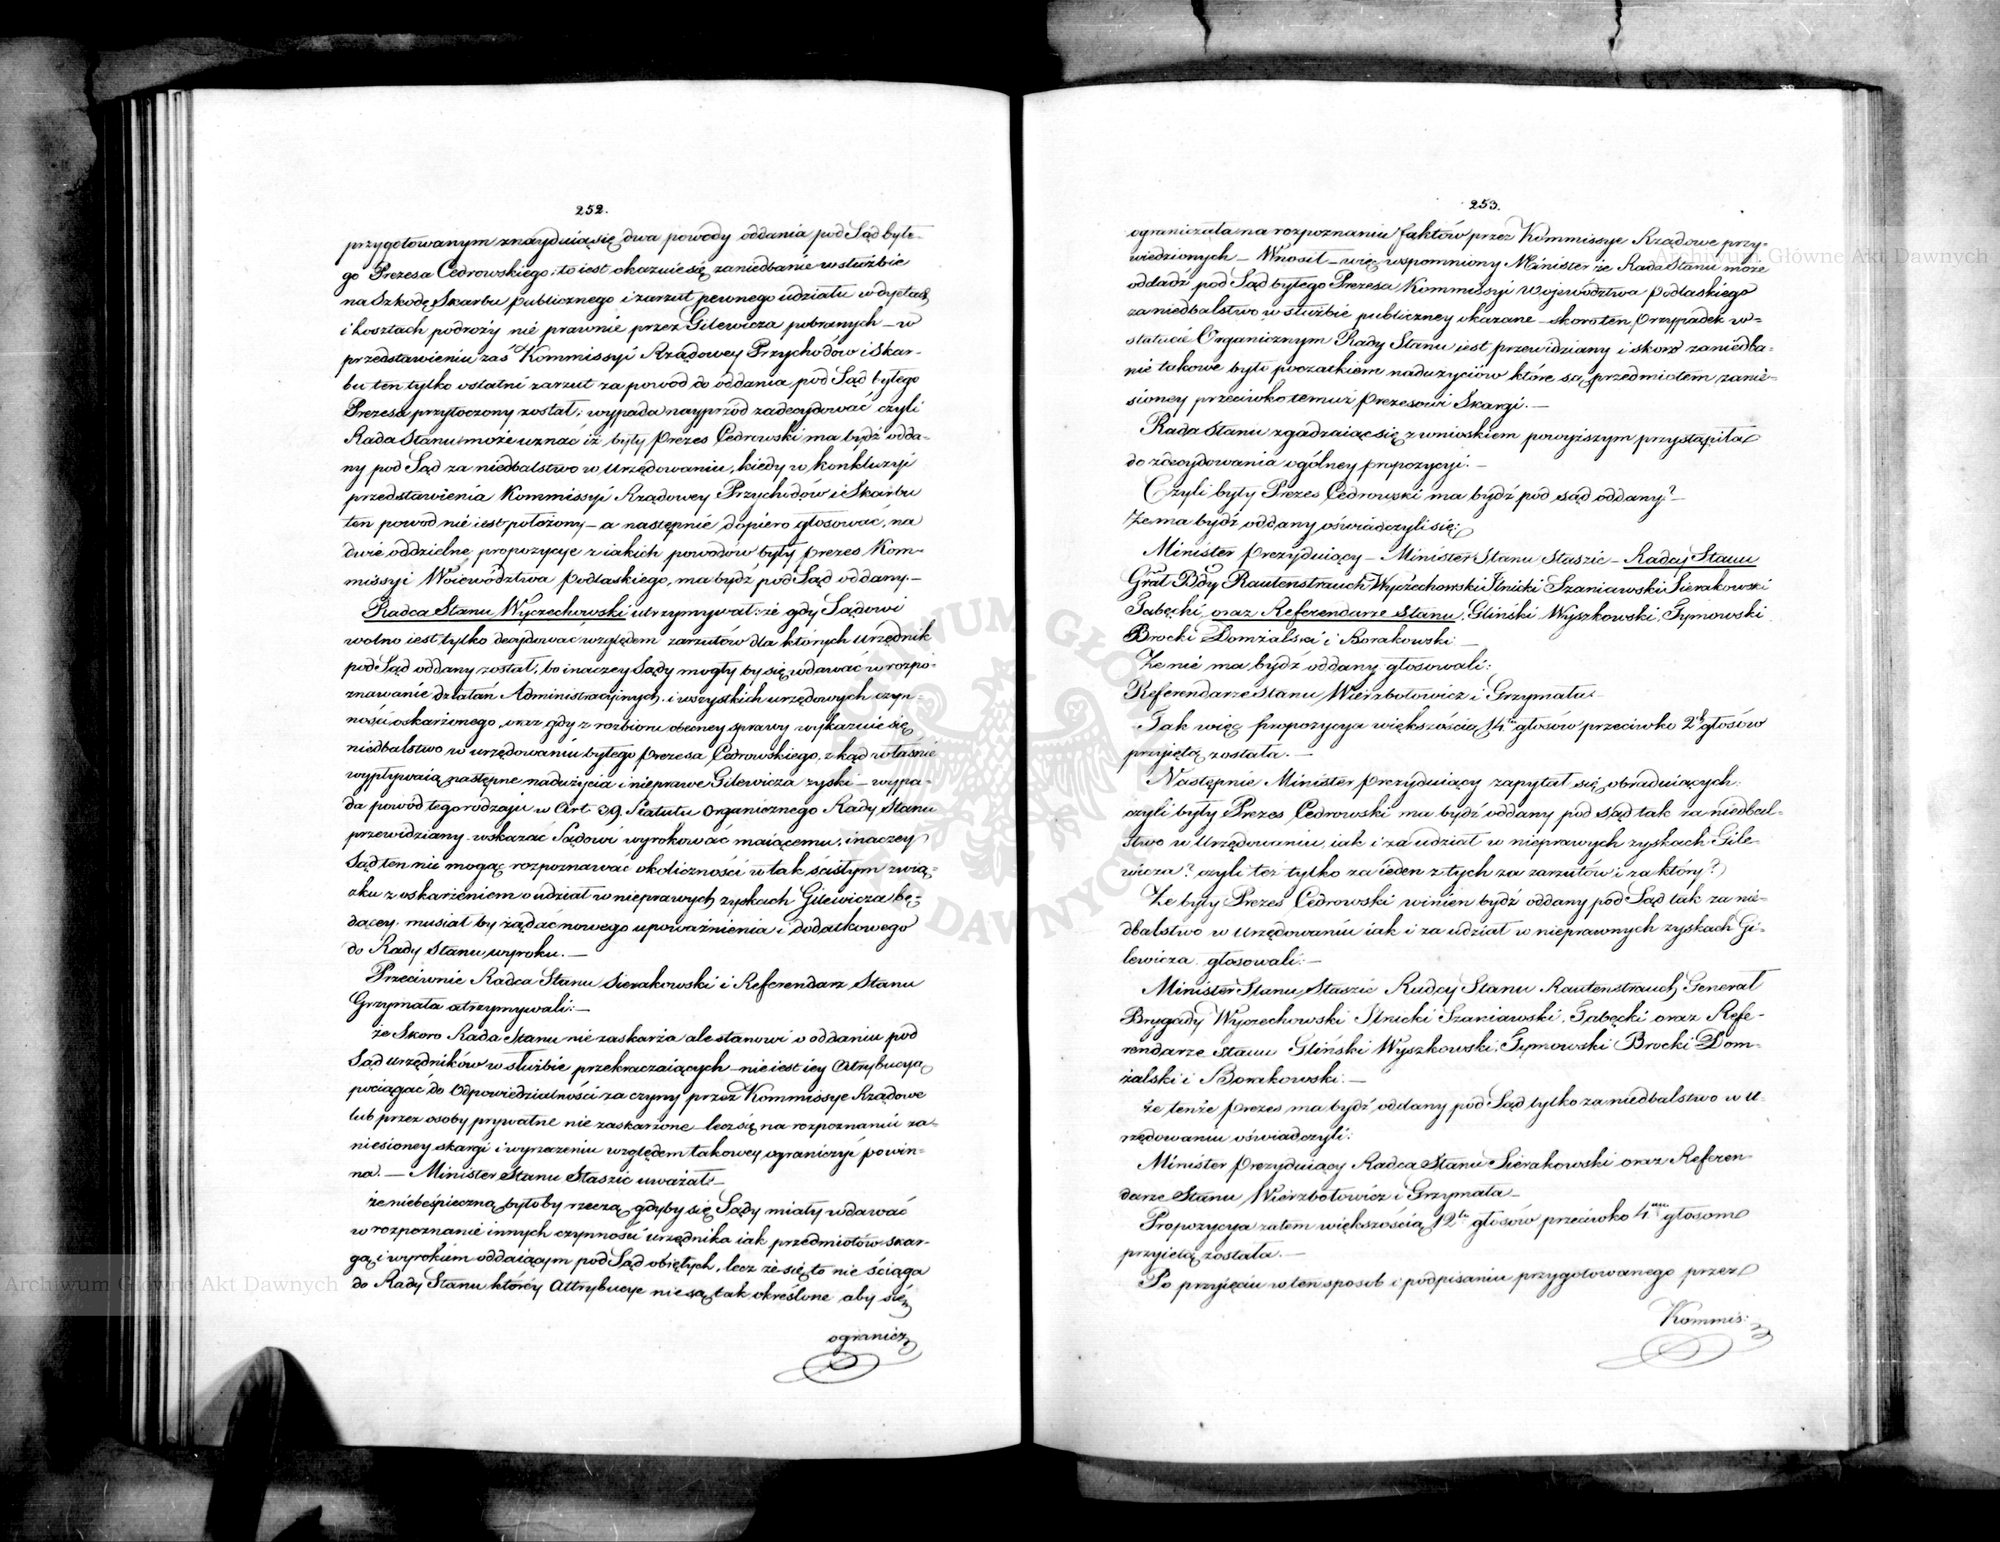 252.
przygotowanym znayduią się dwa powody oddania pod Sąd byłe-
go Prezesa Cedrowskiego; to iest okazuie się zaniedbanie w służbie
na Szkodę Skarbu publicznego i zarzut pewnego udziału w dyetach
i kosztach podroży nie prawnie przez Gilewicza pobranych – w
przedstawieniu zaś Kommissyi Rządowey Przychodów i Skar-
bu ten tylko ostatni zarzut za powód do oddania pod Sąd byłego
Prezesa przytoczony został; wypada nayprzód zadecydować czyli
Rada Stanu może uznać iż były Prezes Cedrowski ma bydź odda-
ny pod Sąd za niedbalstwo w Urzędowaniu, kiedy w konkluzyi
przedstawienia Kommissyi Rządowey Przychodów i Skarbu
ten powód nie iest położony – a następnie dopiero głosować, na
dwie oddzielne propozycye z iakich powodów były Prezes Kom-
missyi Woiewództwa Podlaskiego, ma bydź pod Sąd oddany. –
Radca Stanu Wyczechowski utrzymywał: że gdy Sądowi
wolno iest tylko decydować względem zarzutów dla których Urzędnik
pod Sąd oddany został, bo inaczey Sądy mogły by się wdawać w rozpo-
znawanie działań Administracyinych, i wszystkich urzędowych czyn-
ności oskarżonego, oraz gdy z rozbioru obecney sprawy wykazuie się
niedbalstwo w urzędowaniu byłego Prezesa Cedrowskiego, zkąd właśnie
wypływaią następne nadużycia i nieprawe Gilewicza zyski – wypa-
da powód tego rodzaju w Art. 39. Statutu Organicznego Rady Stanu
przewidziany wskazać Sądowi wyrokować maiącemu, inaczey
Sąd ten nie mogąc rozpoznawać okoliczności w tak ścisłym zwią-
zku z oskarżeniem o udział w nieprawych zyskach Gilewicza bę-
dącey, musiał by żądać nowego upoważnienia i dodatkowego
do Rady Stanu wyroku. –
Przeciwnie Radca Stanu Sierakowski i Referendarz Stanu
Grzymała utrzymywali: –
że Skoro Rada Stanu nie zaskarża ale stanowi o oddaniu pod
Sąd urzędników w służbie przekraczaiących – nie iest iey Attrybucyą
pociągać do Odpowiedzialności za czyny przez Kommissye Rządowe
lub przez osoby prywatne nie zaskarżone – lecz się na rozpoznaniu za-
niesioney skargi i wyrzeczeniu względem takowey ograniczyć powin-
na. – Minister Stanu Staszic uważał: –
że niebeśpieczną byłoby rzeczą gdyby się Sądy miały wdawać
w rozpoznanie innych czynności urzędnika iak przedmiotów skar-
gą i wyrokiem oddaiącym pod Sąd obiętych, lecz że się to nie ściąga
do Rady Stanu którey Attrybucye nie są tak określone aby się
ogranicz
253.
ograniczała na rozpoznaniu faktów przez Kommissye Rządowe przy-
wiedzionych – Wnosił – więc wspomniony Minister że Rada Stanu może
oddadź pod Sąd byłego Prezesa Kommissyi Województwa Podlaskiego
za niedbalstwo w służbie publiczney okazane – skoro ten przypadek w-
statucie Organicznym Rady Stanu iest przewidziany i skoro zaniedba-
nie takowe było początkiem nadużyciów które są przedmiotem zanie-
sioney przeciwko temuż Prezesowi Skargi. –
Rada Stanu zgadzaiąc się z wnioskiem powyższym przystąpiła
do zdecydowania ogólney propozycyi: –
Czyli były Prezes Cedrowski ma bydź pod sąd oddany? –
Że ma bydź oddany oświadczyli się:
Minister Prezyduiący – Minister Stanu Staszic – Radcy Stanu
Grał Bdy Rautenstrauch Wyczechowski Ilnicki Szaniawski Sierakowski
Tabęcki, oraz Referendarze Stanu, Gliński Wyszkowski, Tymowski
Brocki Domżalski i Borakowski
Że nie ma bydź oddany głosowali:
Referendarze Stanu Wierzbołowicz i Grzymała. –
Tak więc propozycya większością 14tu głosów przeciwko 2ch głosów
przyiętą została. –
Następnie Minister Prezyduiący zapytał się obraduiących:
czyli były Prezes Cedrowski ma bydź oddany pod sąd tak za niedbal-
stwo w Urzędowaniu, iak i za udział w nieprawych zyskach Gile-
wicza? czyli też tylko za ieden z tych za zarzutów i za który?
Że były Prezes Cedrowski winien bydź oddany pod Sąd tak za nie-
dbalstwo w Urzędowaniu iak i za udział w nieprawnych zyskach Gi-
lewicza głosowali: –
Minister Stanu Staszic Radcy Stanu Rautenstrauch Generał
Brygady Wyczechowski Ilnicki Szaniawski, Tabęcki oraz Refe-
rendarze Stanu Gliński Wyszkowski, Tymowski Brocki Dom-
żalski i Borakowski. –
że tenże Prezes ma bydź oddany pod Sąd tylko za niedbalstwo w U-
rzędowaniu oświadczyli:
Minister Prezyduiący Radca Stanu Sierakowski oraz Referen-
darze Stanu Wierzbołowicz i Grzymała –
Propozycya zatem większością 12tu głosów przeciwko 4em głosom
przyiętą została. –
Po przyięciu w ten sposob i podpisaniu przygotowanego przez
Kommis:
Archiwum Główne Akt Dawnych
Archiwum Główne Akt Dawnych